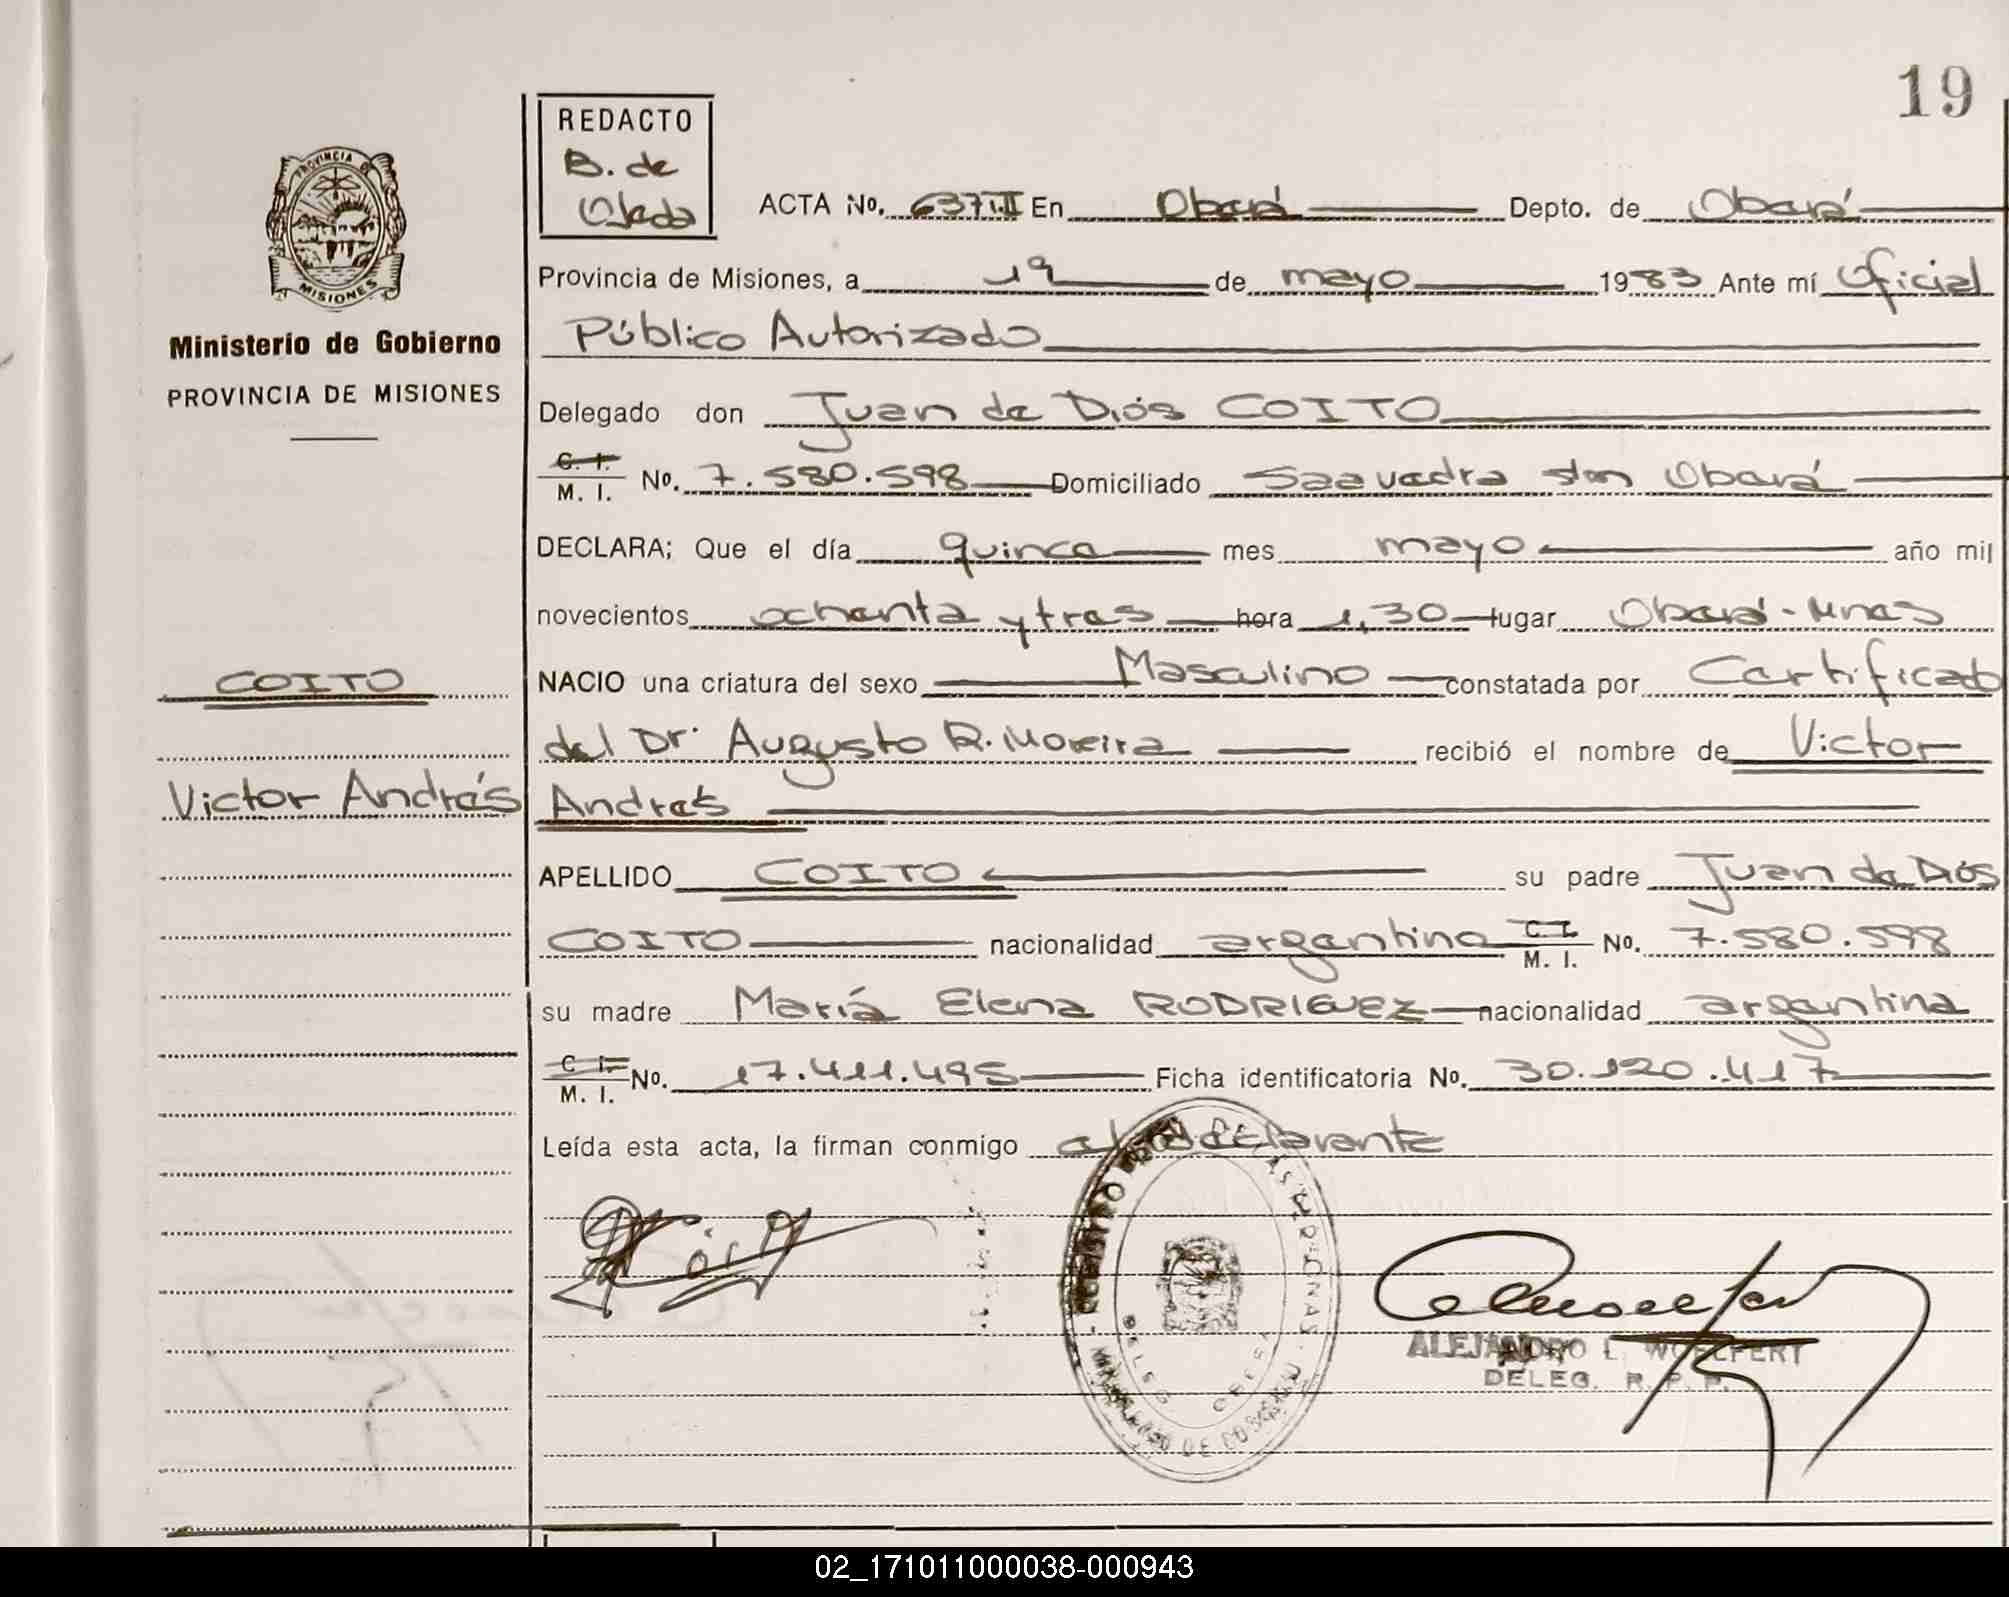 19
REDACTO
B. de
Ojeda
PROVINCIA DE
MISIONES
Ministerio de Gobierno
PROVINCIA DE MISIONES
ACTA No. 637 II En Oberá Depto. de Oberá
Provincia de Misiones, a 19 de mayo 1983 Ante mí Oficial
Público Autorizado
Delegado don Juan de Diós COITO
C. I.
M. I. No. 7.580.598 Domiciliado Saavedra s/n Oberá
DECLARA; Que el día quince mes mayo año mil
novecientos ochenta y tres hora 1,30 lugar Oberá - Mnes
COITO
NACIO una criatura del sexo Masculino constatada por Certificado
del Dr. Augusto R. Moreira recibió el nombre de Victor
Victor Andrés
Andrés
APELLIDO COITO su padre Juan de Diós
COITO nacionalidad argentina C. I.
M. I. No. 7.580.598
su madre María Elena RODRIGUEZ nacionalidad argentina
C. I.
M. I. No. 17.411.495 Ficha identificatoria No. 30.120.417
Leída esta acta, la firman conmigo el declarante
ALEJANDRO L. WOELFERT
DELEG. R. P. P.
02_171011000038-000943